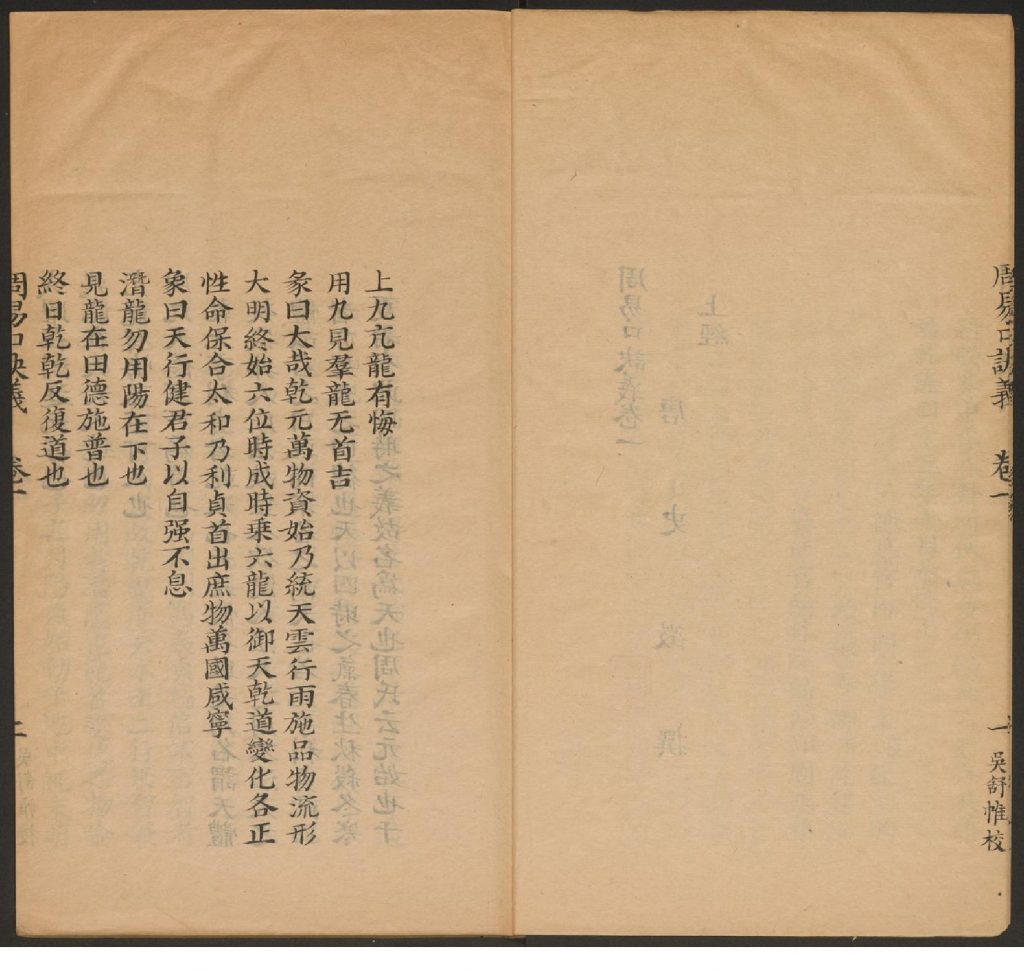 周易口訣義 卷一 一 吳舒惟校
上九亢龍有悔
用九見羣龍无首吉
彖曰大哉乾元萬物資始乃統天雲行雨施品物流形
大明終始六位時成時乘六龍以御天乾道變化各正
性命保合太和乃利貞首出庶物萬國咸寧
象曰天行健君子以自强不息
潛龍勿用陽在下也
見龍在田德施普也
終日乾乾反復道也
周易口訣義 卷一 二